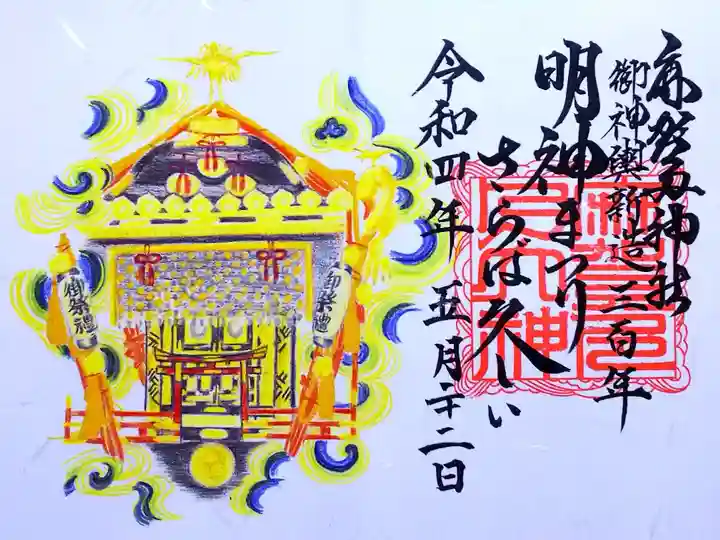 麻賀多神社
御神輿新造三百年
明神まつり
さらば久しい
令和四年 五月二十二日
御祭禮
御祭禮